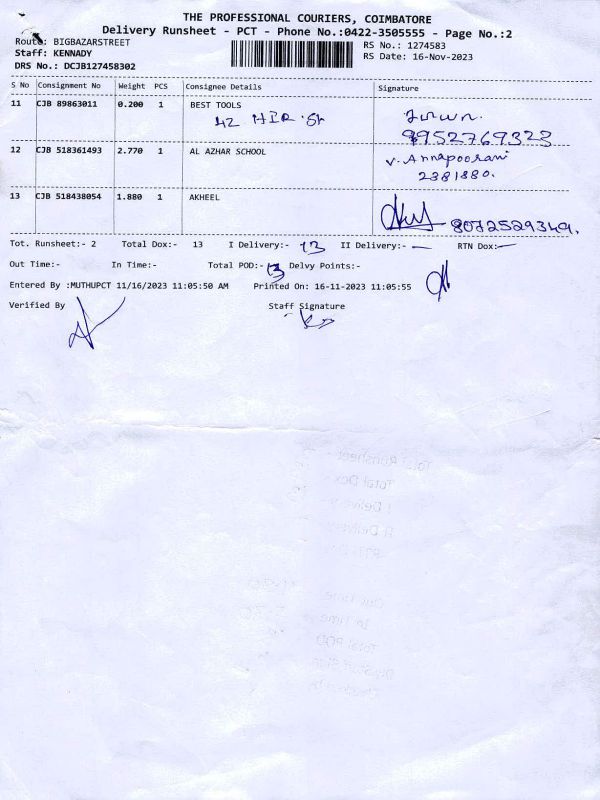 THE PROFESSIONAL COURIERS, COIMBATORE
Delivery Runsheet - PCT - Phone No.:0422-3505555 - Page No.:2
Route: BIGBAZARSTREET
RS No.: 1274583
Staff: KENNADY
RS Date: 16-Nov-2023
DRS No.: DCJB127458302
S No Consignment No Weight PCS Consignee Details Signature
11 CJB 89863011 0.200 1 BEST TOOLS
42 HIR. St
9952769323
12 CJB 518361493 2.770 1 AL AZHAR SCHOOL V. Annapoorani
2381880.
13 CJB 518438054 1.880 1 AKHEEL
8072529349.
Tot. Runsheet:- 2 Total Dox:- 13 I Delivery:- 13 II Delivery:- — RTN Dox:-
Out Time:- In Time:- Total POD:- 13 Delvy Points:-
Entered By :MUTHUPCT 11/16/2023 11:05:50 AM Printed On: 16-11-2023 11:05:55
Verified By Staff Signature